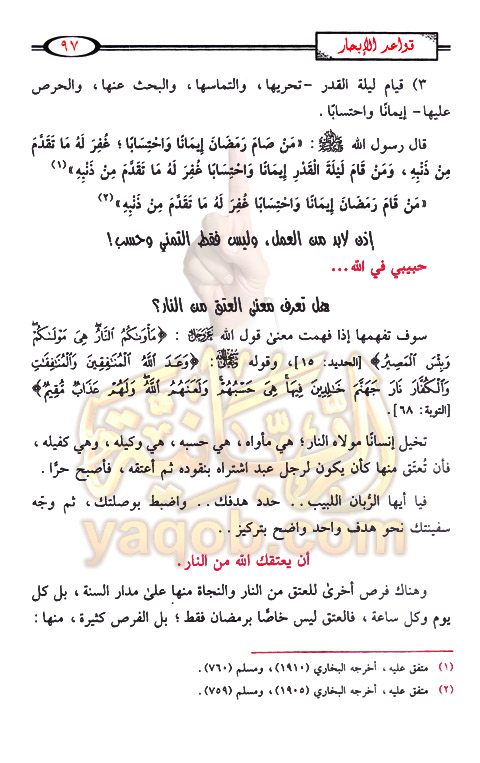 قواعد الإبحار
٩٧
٣) قيام ليلة القدر -تحريها، والتماسها، والبحث عنها، والحرص
عليها- إيمانًا واحتسابًا.
قال رسول الله ﷺ : «مَنْ صَامَ رَمَضَانَ إِيمَانًا وَاحْتِسَابًا ؛ غُفِرَ لَهُ مَا تَقَدَّمَ
مِنْ ذَنْبِهِ ، وَمَنْ قَامَ لَيْلَةَ الْقَدْرِ إِيمَانًا وَاحْتِسَابًا غُفِرَ لَهُ مَا تَقَدَّمَ مِنْ ذَنْبِهِ»(١)
«مَنْ قَامَ رَمَضَانَ إِيمَانًا وَاحْتِسَابًا غُفِرَ لَهُ مَا تَقَدَّمَ مِنْ ذَنْبِهِ»(٢)
إذن لابد من العمل، وليس فقط التمني وحسب!
حبيبي في الله...
هل تعرف معنى العتق من النار؟
سوف تفهمها إذا فهمت معنى قول الله : ﴿مَأْوَىٰكُمُ النَّارُ هِىَ مَوْلَىٰكُمْ
وَبِئْسَ الْمَصِيرُ﴾ [الحديد: ١٥]، وقوله : ﴿وَعَدَ اللَّهُ الْمُنَٰفِقِينَ وَالْمُنَٰفِقَٰتِ
وَالْكُفَّارَ نَارَ جَهَنَّمَ خَٰلِدِينَ فِيهَا هِىَ حَسْبُهُمْ وَلَعَنَهُمُ اللَّهُ وَلَهُمْ عَذَابٌ مُّقِيمٌ﴾
[التوبة: ٦٨].
تخيل إنسانًا مولاه النار؛ هي مأواه، هي حسبه، هي وكيله، وهي كفيله،
فأن تُعتَق منها كأن يكون لرجل عبد اشتراه بنقوده ثم أعتقه، فأصبح حرًّا.
فيا أيها الرُّبان اللبيب.. حدد هدفك.. واضبط بوصلتك، ثم وجّه
سفينتك نحو هدف واحد واضح بتركيز..
أن يعتقك الله من النار.
وهناك فرص أخرىٰ للعتق من النار والنجاة منها علىٰ مدار السنة، بل كل
يوم وكل ساعة، فالعتق ليس خاصًّا برمضان فقط؛ بل الفرص كثيرة، منها:
(١) متفق عليه، أخرجه البخاري (١٩١٠)، ومسلم (٧٦٠).
(٢) متفق عليه، أخرجه البخاري (١٩٠٥)، ومسلم (٧٥٩).
yaqob.com